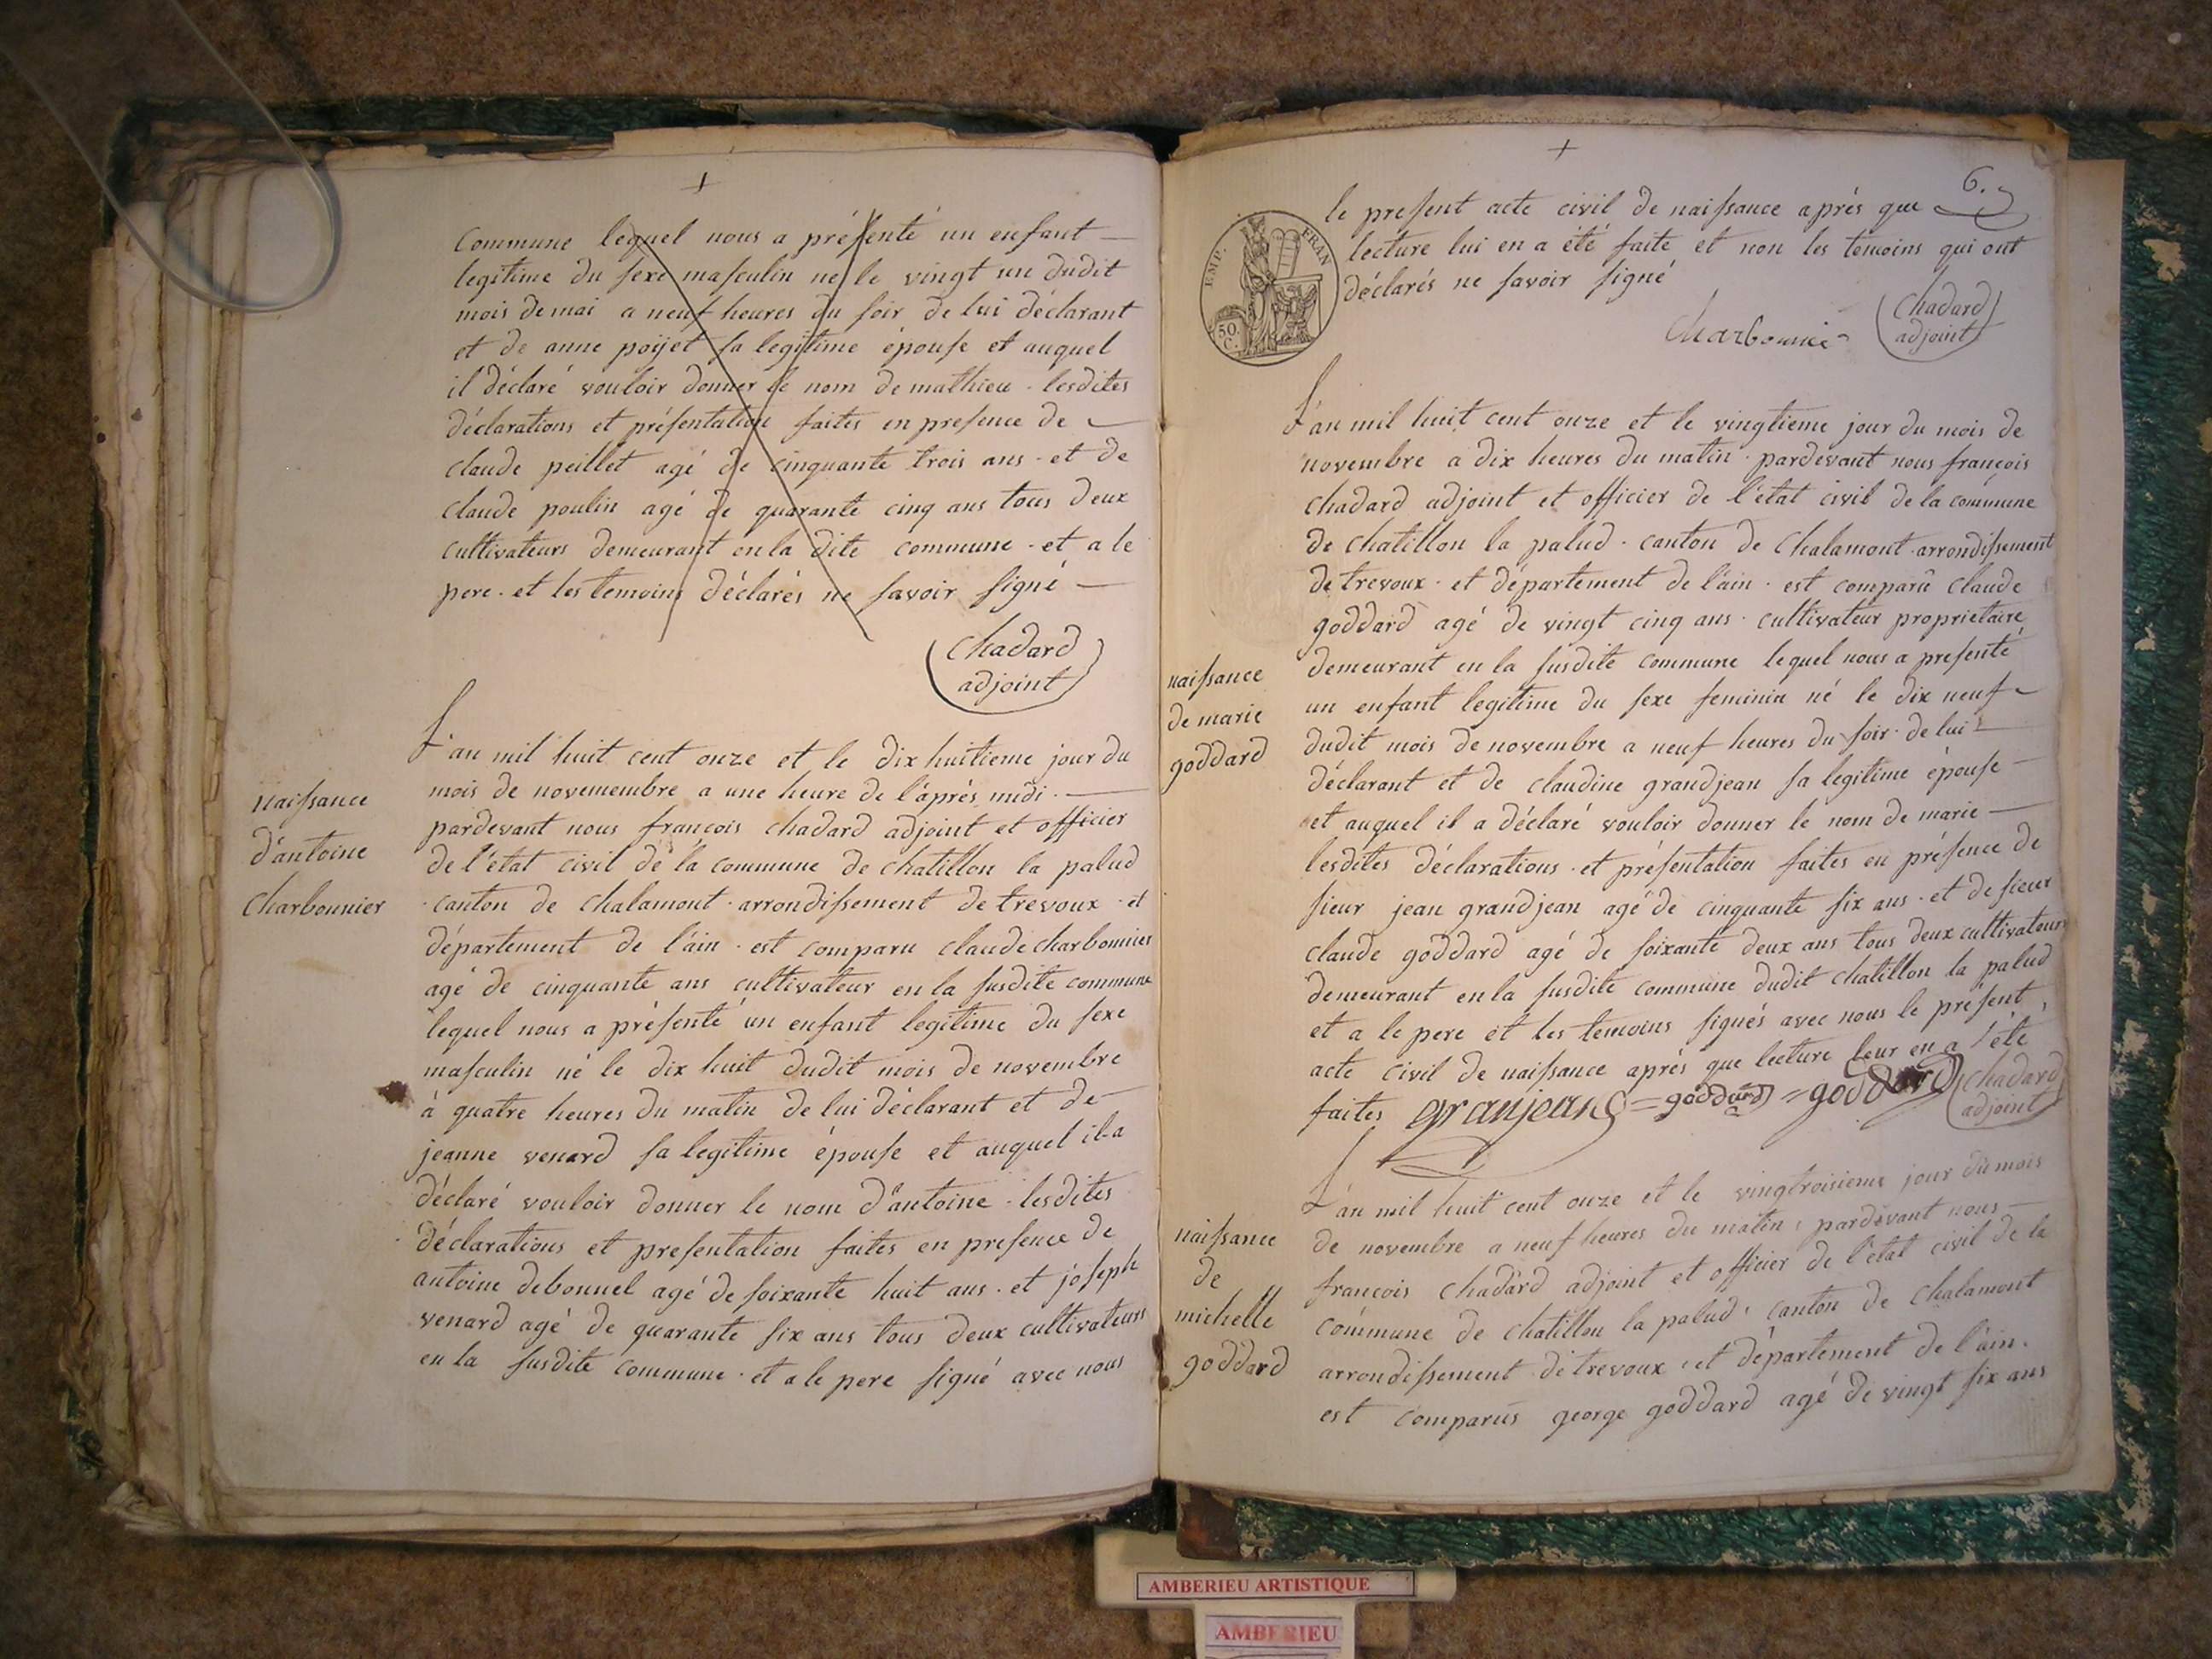 commune lequel nous a présenté un enfant
legitime du sexe masculin né le vingt un dudit
mois de mai a neuf heures du soir de lui déclarant
et de anne poijet sa legitime épouse et auquel
il déclaré vouloir donner le nom de mathieu - lesdites
déclarations et présentation faites en presence de
claude peillet agé de cinquante trois ans - et de
claude poulin agé de quarante cinq ans tous deux
cultivateurs demeurant en la dite commune - et a le
pere - et les temoins déclarés ne savoir signé
chadard
adjoint
naissance
d'antoine
charbonnier
L'an mil huit cent onze et le dix huitieme jour du
mois de novemembre a une heure de l'après midi -
pardevant nous françois chadard adjoint et officier
de l'état civil de la commune de chatillon la palud
canton de chalamont - arrondissement de trevoux - et
département de l'ain - est comparu claude charbonnier
agé de cinquante ans cultivateur en la susdite commune
lequel nous a présenté un enfant legitime du sexe
masculin né le dix huit dudit mois de novembre
à quatre heures du matin de lui déclarant et de
jeanne venard sa legitime épouse et auquel il a
déclaré vouloir donner le nom d'antoine - lesdites
déclarations et presentation faites en presence de
antoine debonnel agé de soixante huit ans - et joseph
venard agé de quarante six ans tous deux cultivateurs
en la susdite commune - et a le pere signé avec nous
6.
le present acte civil de naissance après que
lecture lui en a été faite et non les temoins qui ont
déclarés ne savoir signé
EMP. FRAN
50.
C.
Charbonnie
chadard
adjoint
naissance
de marie
goddard
L'an mil huit cent onze et le vingtieme jour du mois de
novembre a dix heures du matin - pardevant nous françois
chadard adjoint et officier de l'état civil de la commune
de chatillon la palud - canton de chalamont - arrondissement
de trevoux - et département de l'ain - est comparû claude
goddard agé de vingt cinq ans - cultivateur proprietaire
demeurant en la susdite commune lequel nous a presenté
un enfant legitime du sexe feminin né le dix neuf
dudit mois de novembre a neuf heures du soir - de lui
déclarant et de claudine grandjean sa legitime épouse
et auquel il a déclaré vouloir donner le nom de marie
lesdites déclarations - et présentation faites en présence de
sieur jean grandjean agé de cinquante six ans - et de sieur
claude goddard agé de soixante deux ans tous deux cultivateurs
demeurant en la susdite commune dudit chatillon la palud
et a le pere et les temoins signés avec nous le présent
acte civil de naissance après que lecture leur en a été
faites granjean = goddard = goddard chadard
adjoint
naissance
de
michelle
goddard
L'an mil huit cent onze et le vingtroisieme jour du mois
de novembre a neuf heures du matin, pardevant nous
françois chadard adjoint et officier de l'état civil de la
commune de chatillon la palud, canton de chalamont
arrondissement de trevoux, et département de l'ain.
est comparûs george goddard agé de vingt six ans
AMBERIEU ARTISTIQUE
AMBERIEU